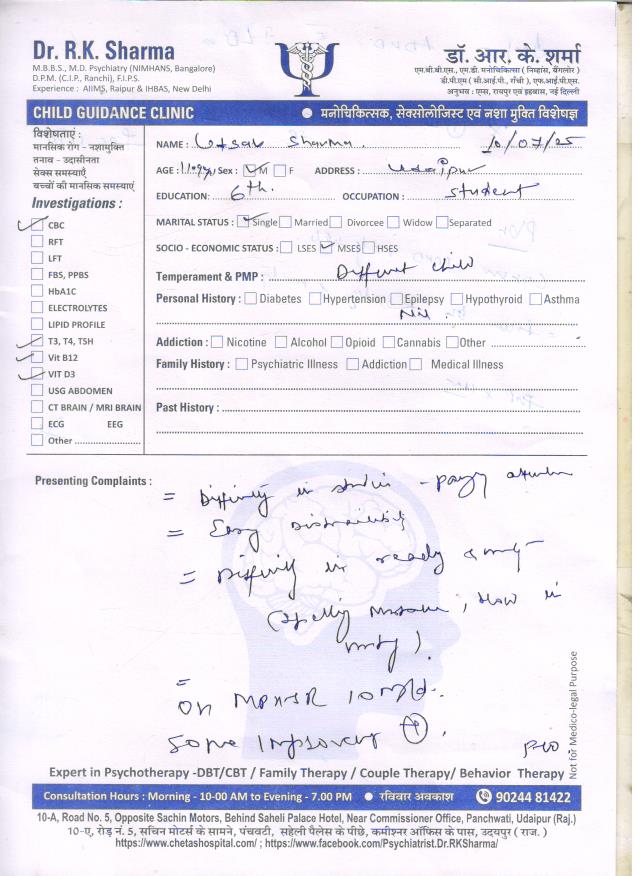 Dr. R.K. Sharma
M.B.B.S., M.D. Psychiatry (NIMHANS, Bangalore)
D.P.M. (C.I.P., Ranchi), F.I.P.S.
Experience : AIIMS, Raipur & IHBAS, New Delhi
डॉ. आर. के. शर्मा
एम.बी.बी.एस., एम.डी. मनोचिकित्सा ( निम्हांस, बैंगलोर )
डी.पी.एम ( सी.आई.पी., राँची ), एफ.आई.पी.एस.
अनुभव : एम्स, रायपुर एवं इहबास, नई दिल्ली
CHILD GUIDANCE CLINIC
● मनोचिकित्सक, सेक्सोलोजिस्ट एवं नशा मुक्ति विशेषज्ञ
विशेषताएं :
मानसिक रोग - नशामुक्ति
तनाव - उदासीनता
सेक्स समस्याएँ
बच्चों की मानसिक समस्याएं
Investigations :
CBC
RFT
LFT
FBS, PPBS
HbA1C
ELECTROLYTES
LIPID PROFILE
T3, T4, TSH
Vit B12
VIT D3
USG ABDOMEN
CT BRAIN / MRI BRAIN
ECG EEG
Other
NAME : Utsav Sharma 10/07/25
AGE : 11 Sex : M F ADDRESS : Udaipur
EDUCATION: 6th. OCCUPATION : Student
MARITAL STATUS : Single Married Divorcee Widow Separated
SOCIO - ECONOMIC STATUS : LSES MSES HSES
Temperament & PMP : Different child
Personal History : Diabetes Hypertension Epilepsy Hypothyroid Asthma
Nil
Addiction : Nicotine Alcohol Opioid Cannabis Other
Family History : Psychiatric Illness Addiction Medical Illness
Past History :
Presenting Complaints :
= Difficulty in studies - paying attention
= Easy Distractibility
= Difficulty in
(Spelling , slow in
).
=
On 10
Some improvement (+).
Not for Medico-legal Purpose
Expert in Psychotherapy -DBT/CBT / Family Therapy / Couple Therapy/ Behavior Therapy
Consultation Hours : Morning - 10-00 AM to Evening - 7.00 PM ● रविवार अवकाश 90244 81422
10-A, Road No. 5, Opposite Sachin Motors, Behind Saheli Palace Hotel, Near Commissioner Office, Panchwati, Udaipur (Raj.)
10-ए, रोड़ नं. 5, सचिन मोटर्स के सामने, पंचवटी, सहेली पैलेस के पीछे, कमीश्नर ऑफिस के पास, उदयपुर ( राज. )
https://www.chetashospital.com/ ; https://www.facebook.com/Psychiatrist.Dr.RKSharma/